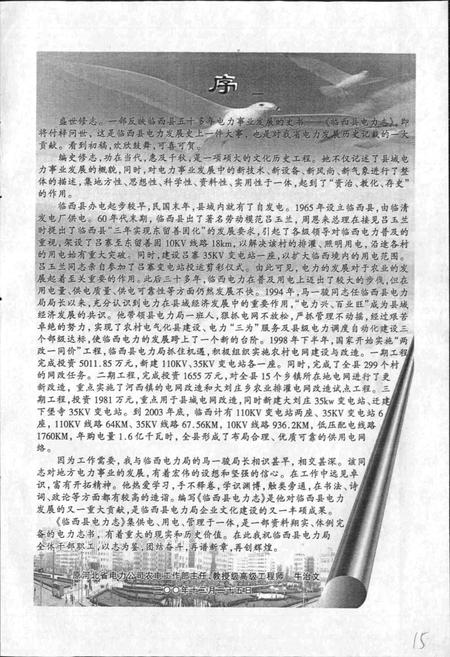 序一
盛世修志。一部反映临西县五十多年电力事业发展的史书——《临西县电力志》,即
将付梓问世,这是临西县电力发展史上一件大事,也是对我省电力发展历史记载的一大
贡献。看到初稿,欢欣鼓舞,可喜可贺。
编史修志,功在当代,惠及千秋,是一项硕大的文化历史工程。她不仅记述了县域电
力事业发展的概貌,同时,对电力事业发展中的新技术、新设备、新风尚、新气象进行了整
体的描述,集地方性、思想性、科学性、资料性、实用性于一体,起到了“资治、教化、存史”
的作用。
临西县办电起步较早,民国末年,县域内就有了自发电。1965年设立临西县,由临清
发电厂供电。60年代末期,临西县出了著名劳动模范吕玉兰,周恩来总理在接见吕玉兰
时提出了临西县“三年实现东留善固化”的发展要求,引起了各级领导对临西电力普及的
重视,架设了吕寨至东留善固10KV线路18km,以解决该村的排灌、照明用电,沿途各村
的用电始有重大突破。同时,建设吕寨35KV变电站一座,以扩大临西境内的用电范围。
吕玉兰同志亲自参加了吕寨变电站投运剪彩仪式。由此可见,电力的发展对于农业的发
展起着至关重要的作用。此后三十多年,临西电力在普及用电上迈出了较大的步伐,但在
用电量、供电质量、供电可靠性等方面仍然发展不快。1994年,马一骏同志任临西县电力
局局长以来,充分认识到电力在县域经济发展中的重要作用,“电力兴、百业旺”成为县域
经济发展的共识。他带领县电力局一班人,狠抓电网不放松,严抓管理不动摇,经过艰苦
卓绝的努力,实现了农村电气化县建设、电力“三为”服务及县级电力调度自动化建设三
个部级达标,使临西电力的发展跨上了一个新的台阶。1998年下半年,国家开始实施“两
改一同价”工程,临西县电力局抓住机遇,积极组织实施农村电网建设与改造。一期工程
完成投资5011.85万元,新建110KV、35KV变电站各一座。同时,完成了全县299个村
的网改任务。二期工程,完成投资1655万元,对全县15个乡镇所在地电网进行了更
新改造,重点实施了河西镇的电网改造和大刘庄乡农业排灌电网改造试点工程。三
期工程,投资1981万元,重点用于县城电网改造,同时新建大刘庄35kw变电站、迁建
下堡寺35KV变电站。到2003年底,临西计有110KV变电站两座、35KV变电站6
座,110KV线路64KM、35KV线路67.56KM,10KV线路936.2KM,低压配电线路
1760KM,年购电量1.6亿千瓦时,全县形成了布局合理、优质可靠的供用电网
络。
因为工作需要,我与临西电力局的马一骏局长相识甚早,相交甚深。该同
志对地方电力事业的发展,有着宏伟的设想和坚强的信心。在工作中远见卓
识,富有开拓精神。他热爱学习,手不释卷,学识渊博,触类旁通,在书法、诗
词、政论等方面都有较高的造诣。编写《临西县电力志》是他对临西县电力
发展的又一重大贡献,是临西县电力局企业文化建设的又一丰硕成果。
《临西县电力志》集供电、用电、管理于一体,是一部资料翔实、体例完
备的电力志书,有着重大的现实和历史价值。在此我祝临西县电力局
全体干部职工,以志为鉴,团结奋斗,再谱新章,再创辉煌。
原河北省电力公司农电工作部主任、教授级高级工程师 牛治文
15